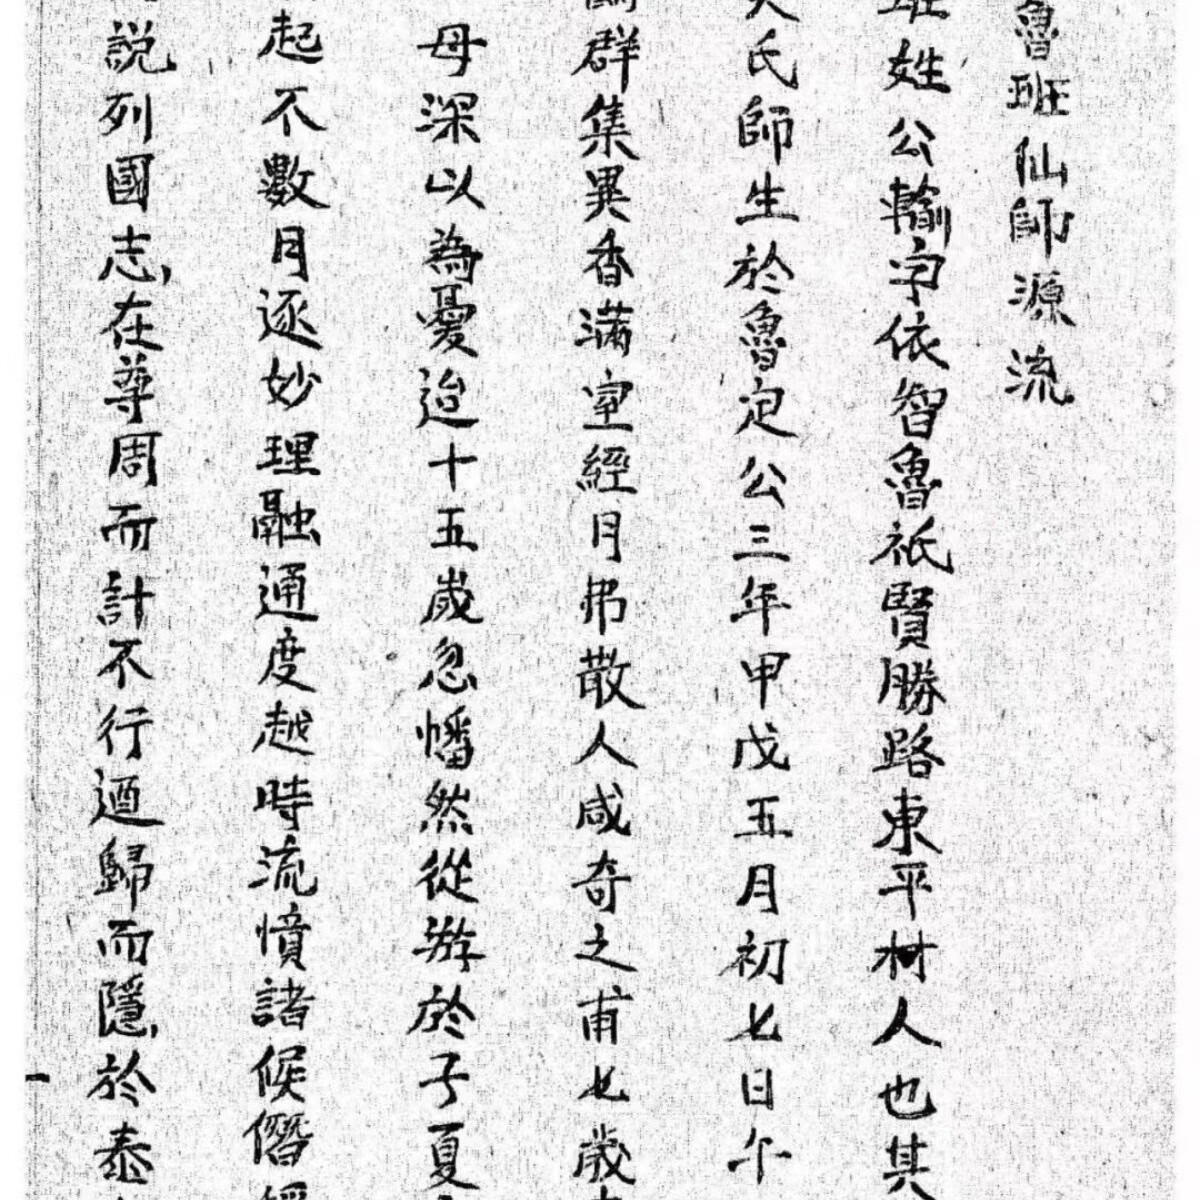 魯班仙師源流
班姓公輸字依智魯祇賢勝路東平村人也其
氏師生於魯定公三年甲戊五月初七日午
群集異香滿室經月弗散人咸奇之甫七歲
母深以為憂迨十五歲忽幡然從游於子夏
起不數月逐妙理融通度越時流憤諸候僭
說列國志在尊周而計不行迺歸而隱於泰